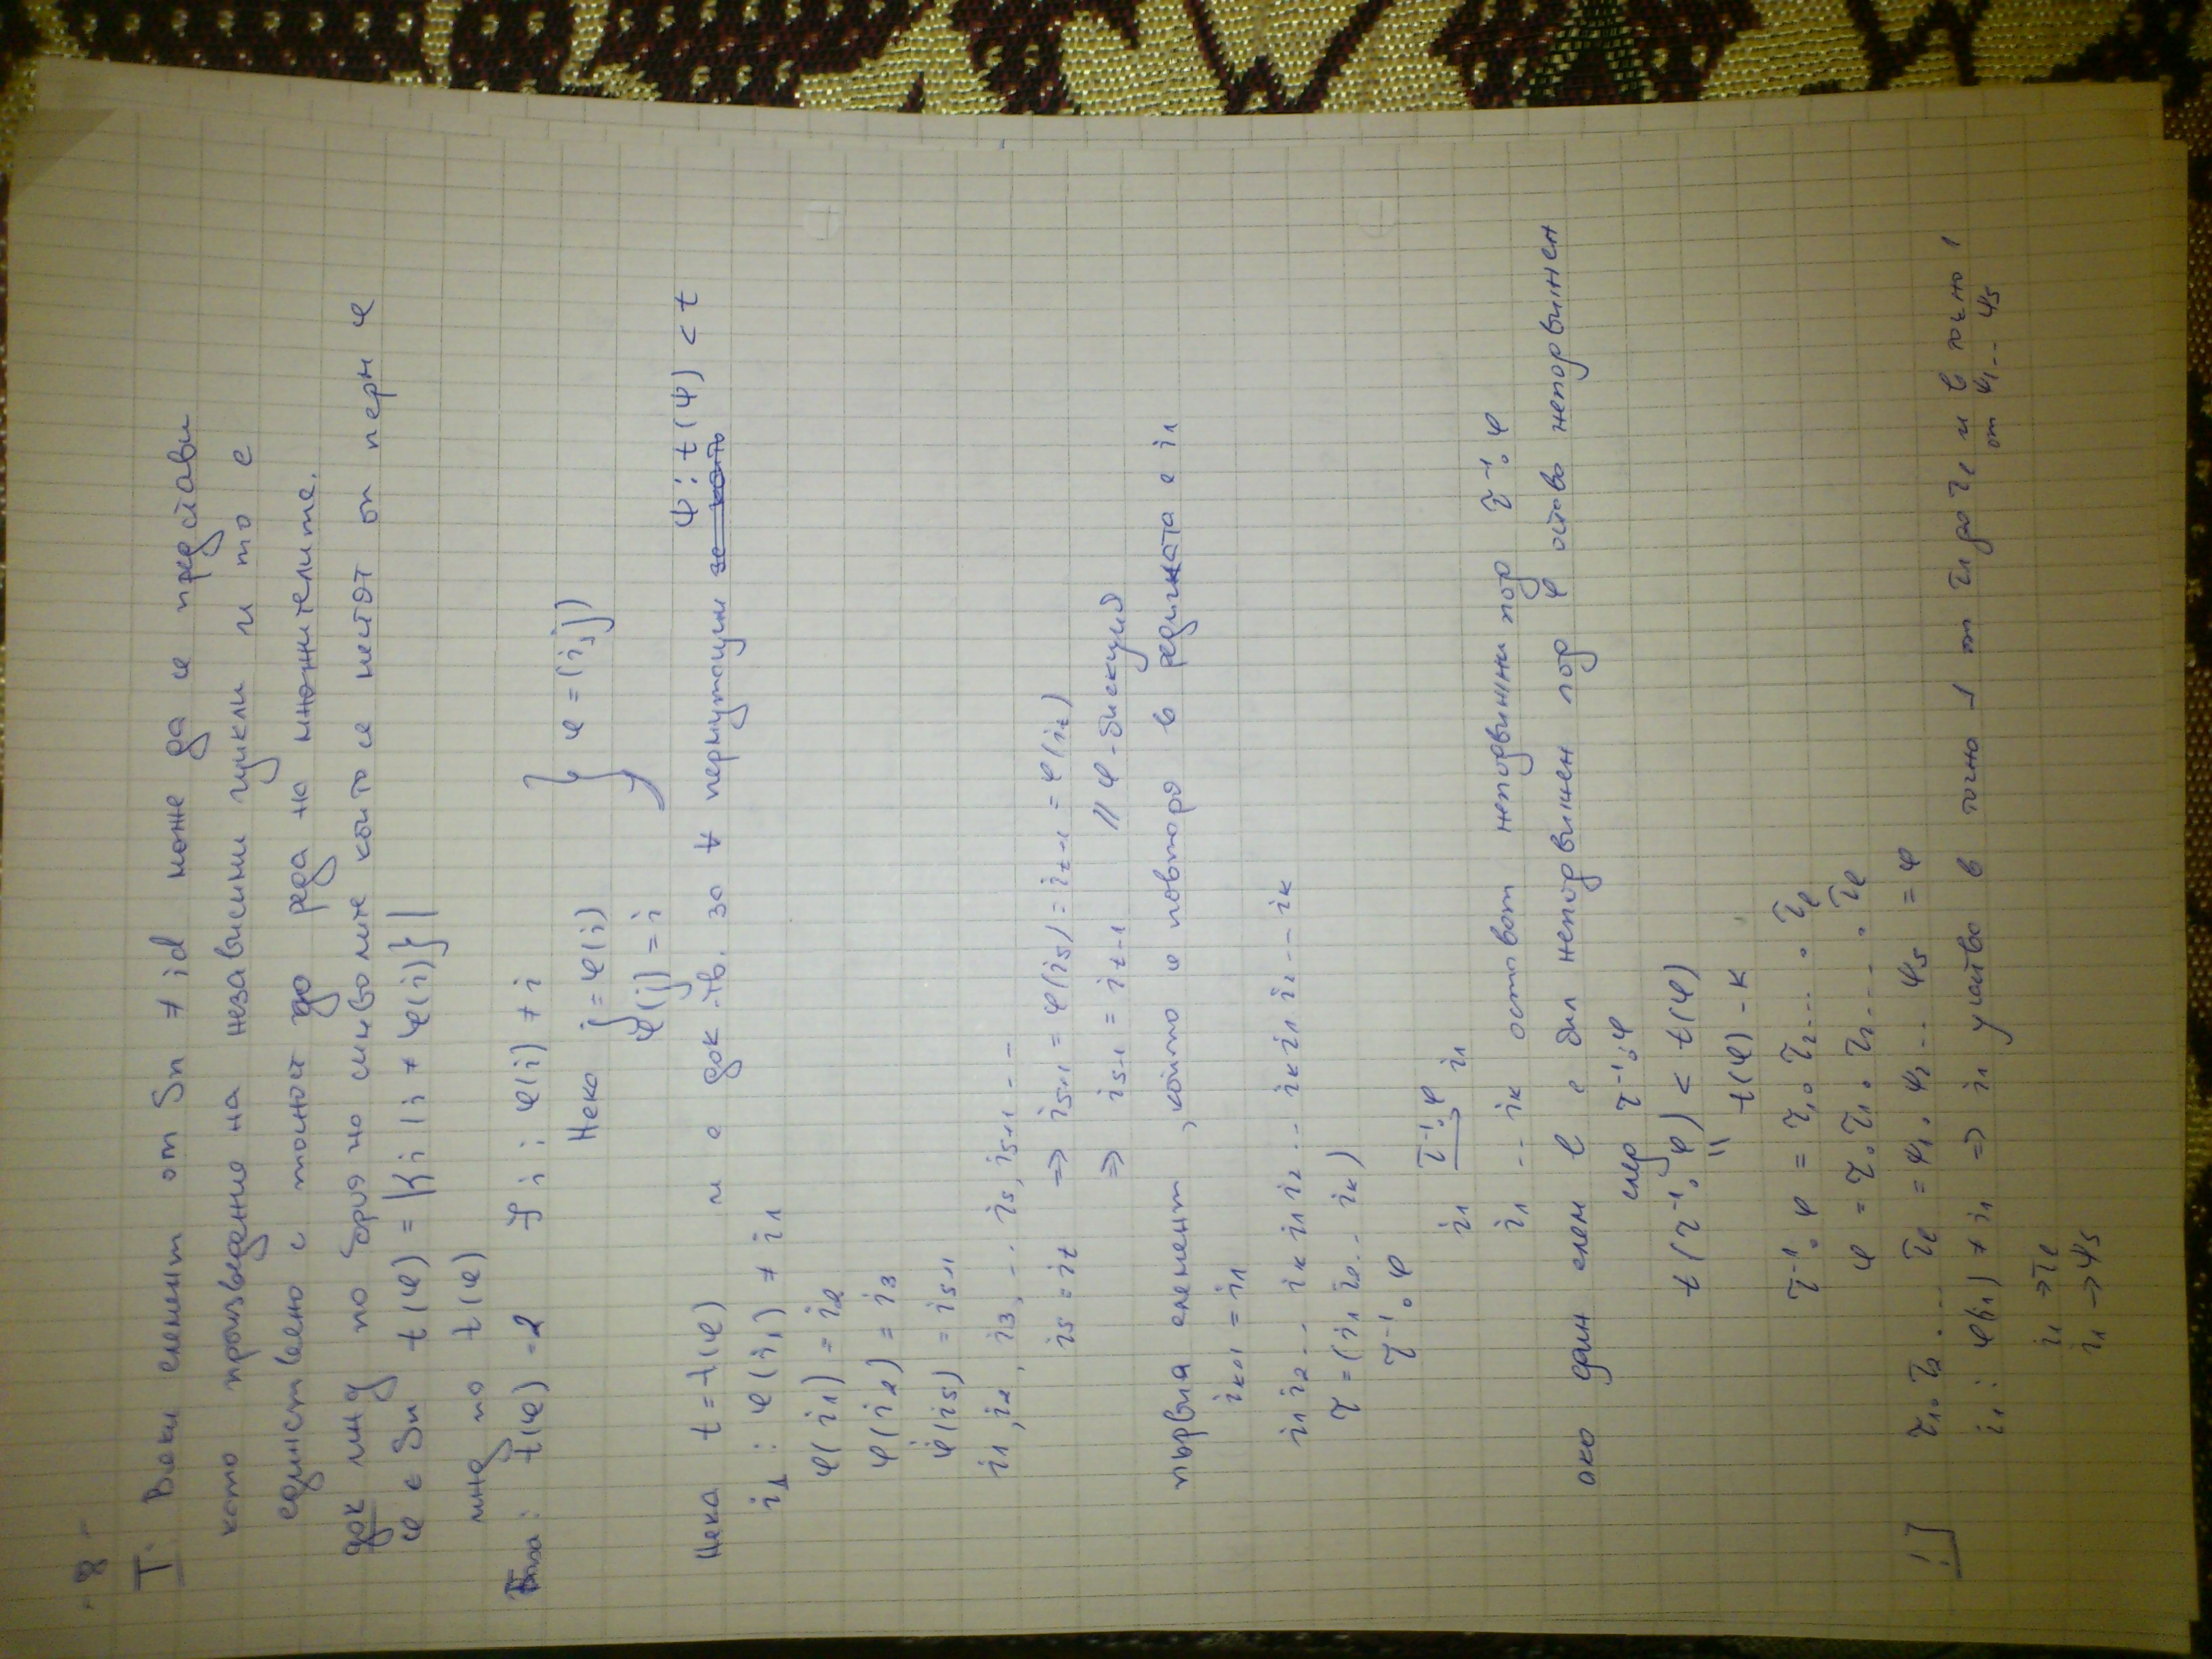 - 8 -
Т. Всеки елемент от Sn ≠ id може да се представи
като произведение на независими цикли и то е
единствено с точност до реда на множителите.
док инд по броя на символите които се местят от перм φ
φ ∈ Sn t(φ) = |{i | i ≠ φ(i)}|
инд по t(φ)
База: t(φ) = 2 ∃ i : φ(i) ≠ i
Нека j = φ(i) } φ = (i,j)
φ(j) = i
Нека t = t(φ) и е док.-тв. за ∀ пермутации ψ : t(ψ) < t
i1 : φ(i1) ≠ i1
φ(i1) = i2
φ(i2) = i3
φ(is) = is+1
i1, i2, i3, ... is, is+1 ...
is = it => is+1 = φ(is) = it+1 = φ(it)
=> is-1 = it-1 // φ - биекция
първия елемент, който се повтаря в редицата е i1
ik+1 = i1
i1 i2 ... ik i1 i2 ... ik i1 i2 ... ik
τ = (i1 i2 ... ik)
τ⁻¹∘φ
i1 τ⁻¹∘φ → i1
i1 ... ik остават неподвижни под τ⁻¹∘φ
ако един елем l е бил неподвижен под φ остава неподвижен
след τ⁻¹∘φ
t(τ⁻¹∘φ) < t(φ)
=
t(φ) - k
τ⁻¹∘φ = τ1∘τ2 ... ∘τl
φ = τ∘τ1∘τ2 ... ∘τl
!] τ1∘τ2 ... τl = ψ1∘ψ2 ... ψs = φ
i1 : φ(i1) ≠ i1 => i1 участва в точно 1 от τ1 до τl и в точно 1
от ψ1 ... ψs
i1 → τl
i1 → ψs